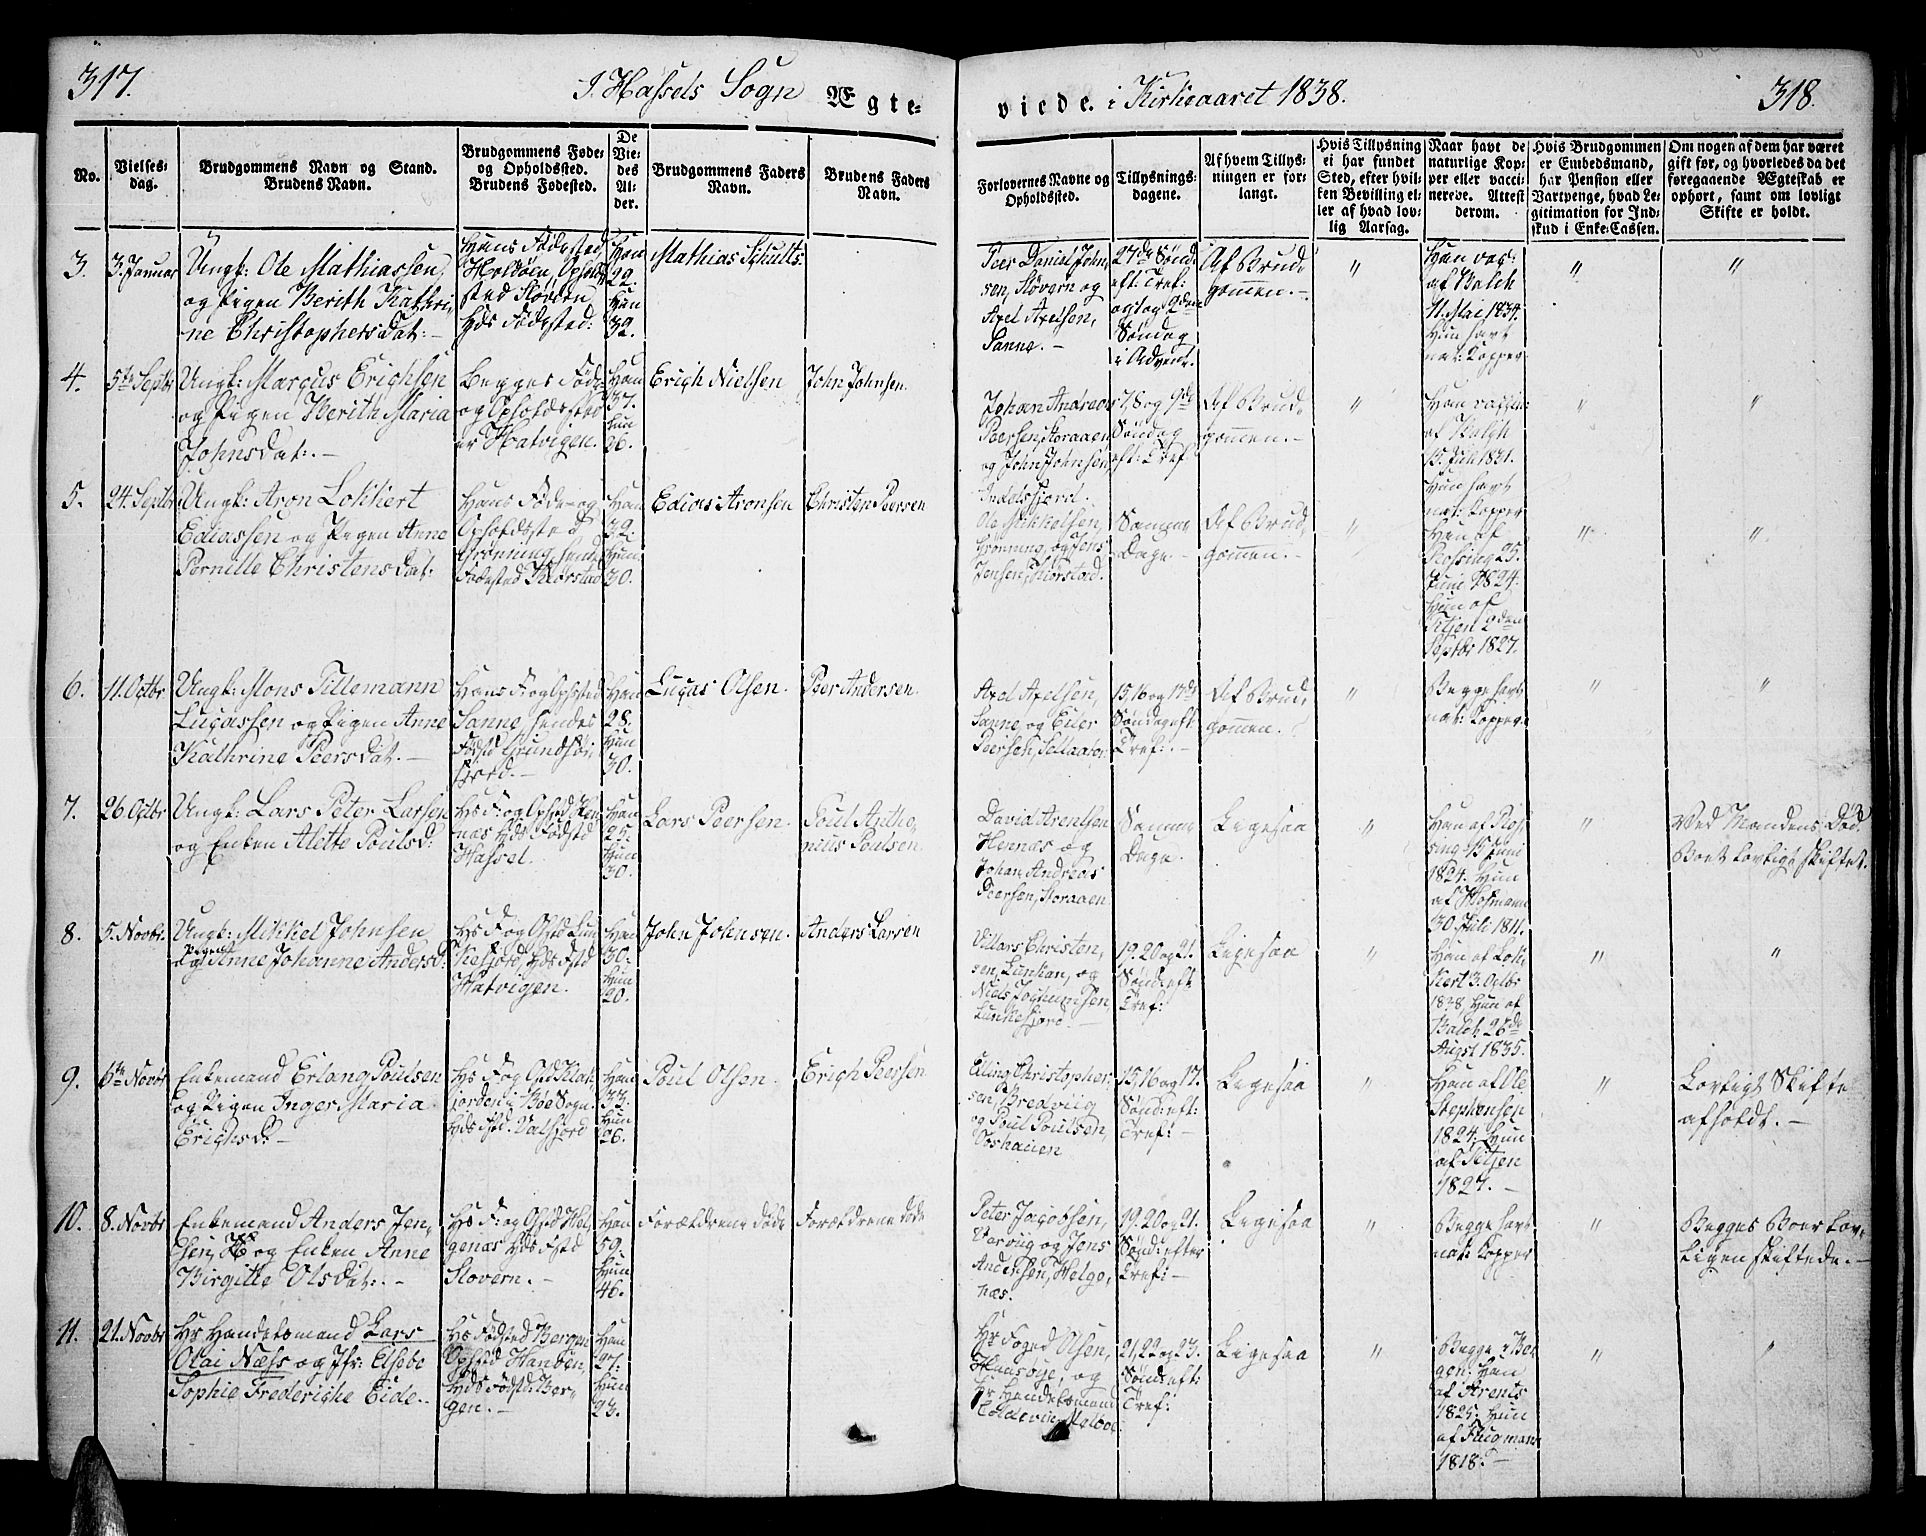 317.
I. Hassels Sogn Ægte-
viede. i Kirkeaaret 1838.
318.
No.
Vielses-
dag.
Brudgommens Navn og Stand.
Brudens Navn.
Brudgommens Føde-
og Opholdssted.
Brudens Fødested.
De
Vie-
des
Al-
der.
Brudgommens Faders
Navn.
Brudens Faders
Navn.
Forlovernes Navne og
Opholdssted.
Tillysnings-
dagene.
Af hvem Tillys-
ningen er for-
langt.
Hvis Tillysning
ei har fundet
Sted, efter hvil-
ken Bevilling el-
ler af hvad lov-
lig Aarsag.
Naar havt de
naturlige Kop-
per eller vacci-
nerede. Attest
derom.
Hvis Brudgommen
er Embedsmand,
har Pension eller
Vartpenge, hvad Le-
gitimation for Ind-
skud i Enke-Cassen.
Om nogen af dem har været
gift før, og hvorledes da det
foregaaende Ægteskab er
ophørt, samt om lovligt
Skifte er holdt.
3.
3. Januar
Ungk: Ole Mathiassen,
og Pigen Berith Kathri-
ne Christophersdat: -
Hans Fødested
Holkøen, Opholds
sted Sløveren
Hds Fødested:
Han
22.
Hun
32.
Mathias Schults
Peer Daniel John,
sen, Sløvern og
Axel Axelsen,
Sanne. -
27de Sønd
eft: Tref:
og 1 og 2den
Søndag
i Advent.
Af Brud,
gommen. -
"
Han vac:
af Balch
11. Mai 1834.
Hun havt
nat: Kopper
"
"
4.
5te Septbr
Ungk: Marcus Erichsen
og Pigen Berith Maria
Johnsdat: -
Begges Føde
og Opholdssted
er Hatvigen.
Han
37.
Hun
26.
Erich Nielsen
John Johnsen.
Johan Andreas
Peersen, Storaaen
og John Johnsen,
Indelsfjord.
7, 8 og 9de
Søndag
eft: Tref
Af Brud,
gommen. -
"
Han vaccin:
af Balch
15. Juli 1831.
Hun havt
nat: Kopper
"
"
5.
24. Septbr
Ungk: Aron Lokkert
Ediassen og Pigen Anne
Pernille Christensdat:
Hans Føde- og
Opholdssted
Grønning, hendes
Fødested Kiørstad
Han
32.
Hun
30.
Edias Aronsen
Christen Peersen
Ole Mikkelsen,
Grønning, og Jens
Jensen, Kiørstad.
Samme
Dage. -
Af Brud,
gommen. -
"
Han af
Rossing 25.
Juni 1824.
Hun af
Titjen 2den
Septbr 1827.
"
"
6.
11. Octbr
Ungk: Mons Tillemann
Lucassen og Pigen Anne
Kathrine Peersdat. -
Hans F. og Ophsted
Sanne, hendes
Fødstd Grundføi,
fjord. -
Han
28.
Hun
30.
Lucas Olsen.
Peer Andersen.
Axel Axelsen,
Sanne og Eiler
Peersen,
15, 16 og 17de
Søndag eft
Tref: -
Af Brud,
gommen.
"
Begge havt
nat: Kopper
"
"
7.
26. Octbr
Ungk: Lars Peter Larsen
og Enken Alette Poulsd:
Hs F: og Ophstd Hen
næs Hds Fødstd
Hassel.
Han
25.
Hun
30.
Lars Peersen.
Poul Antho-
nius Poulsen.
David Arentsen
Hennæs og
Johan Andreas
Peersen, Storaaen
Samme
Dage.
Ligesaa
"
Han af Ros,
sing 15 Juni
1824. Hun
af Hofmann
30. Juli 1811.
"
Ved Mandens Død.
Boet lovligt skiftet.
8.
5. Novbr.
Ungk: Mikkel Johnsen
og Pigen Anne Johanne Andersd:
Hs F. og Ohstd Lun
kefjord, Hds Fstd
Hatvigen.
Han
30.
Hun
20.
John Johnsen.
Anders Larsen
Villars Christen,
sen, Lunkan, og
Niels Jochumsen,
Lunkefjord. -
19. 20 og 21.
Sønd: eft
Tref:
Ligesaa
"
Han af Lok
kert 3. Octbr
1838 Hun af
Balch 26de
Augst 1835.
"
"
9.
6te Novbr
Enkemand Erlang Poulsen
og Pigen Inger Maria
Erichsd: -
Hs F. og Ohstd Klak
jorden i Bøe Sogn.
Hds Fstd. Valfjord
Han
33.
Hun
26.
Poul Olsen.
Erich Peersen
Eling Christopher,
sen, Bredviig
og Poul Poulsen,
Voshauen
15, 16 og 17.
Sønd: eft:
Tref: -
Ligesaa
"
Han af Ole
Stephensen
1824. Hun
af Titjen
1827. -
"
Lovligt Skifte
afholdt. -
10.
8. Novbr
Enkemand Anders Jen-
sen, og Enken Anne
Birgitte Olsdat: -
Hs F: og Ohstd Hel
genæs Hds Fstd
Slovern. -
Han
59.
Hun
46.
Forældrene døde
Forældrene døde
Peter Jacobsen,
Varviig og Jens
Andersen, Helge,
næs.
19. 20 og 21.
Sønd: efter
Tref: -
Ligesaa
"
Begge havt
nat: Kopper
"
Begges Boer lov-
ligen skiftede. -
11.
21. Novbr
Hr Handelsmand Lars
Olai Næss og Jfr: Elsebe
Sophie Frederiche Eide. -
Hs Fødsted Bergen
Ophstd Hansen,
Hds Fødstd: Ber-
gen. -
Han
27.
Hun
23.
Hr Foged Olsen,
Haasøye, og
Hr Handelsmand
Coldevin, Melboe.
21, 22 og 23.
Sønd: eft:
Tref:
Ligesaa
"
Begge i Ber
gen: Han
af Arents
1825. Hun
af Flugmann
1818. -
"
"